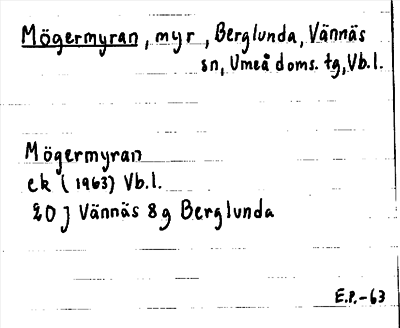 Mögermyran, myr, Berglunda, Vännäs
sn, Umeå doms. tg, Vb.l.
Mögermyran
ek (1963) Vb.l.
20 J Vännäs 8g Berglunda
E.P.-63